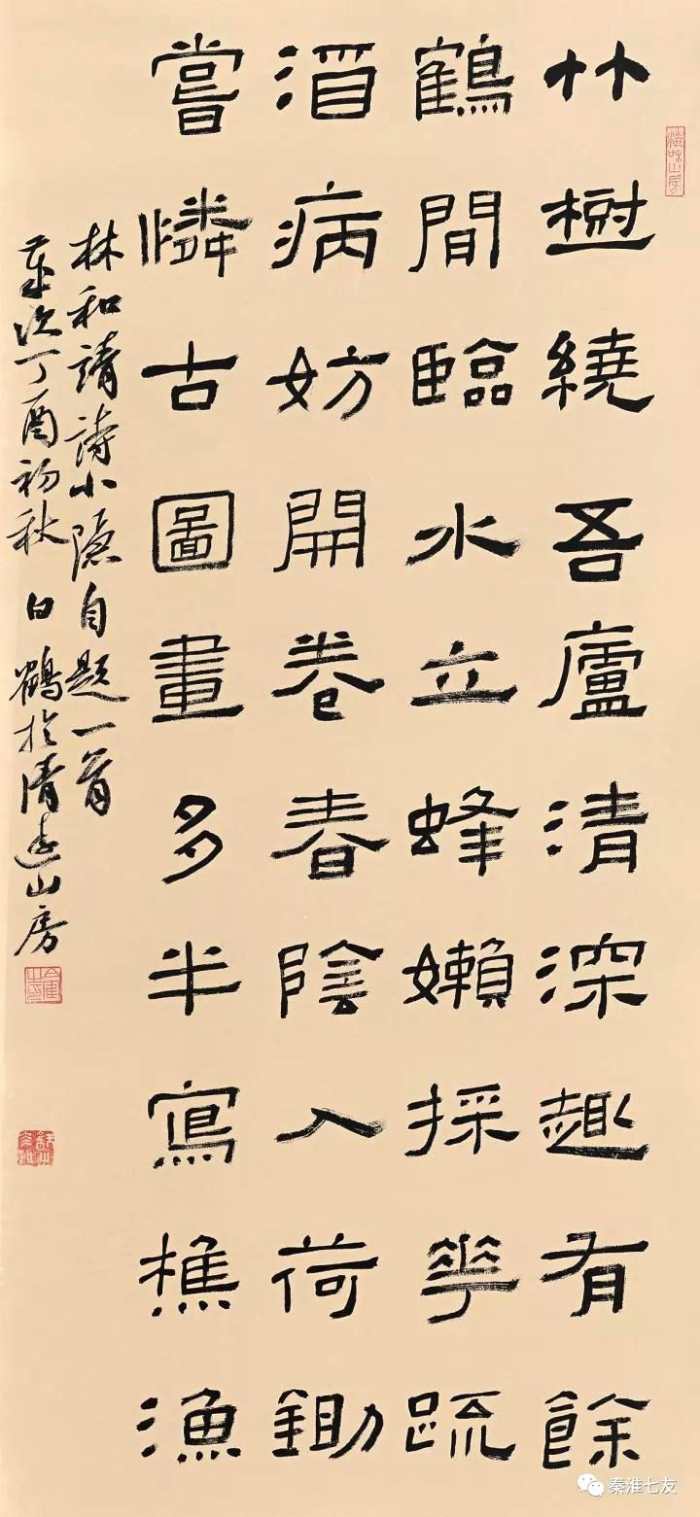 竹樹繞吾廬清深趣有餘
鶴間臨水立蜂嬾採華疏
酒病妨開卷春陰入荷鋤
嘗憐古圖畫多半寫樵漁
林和靖詩小隱自題一首
歲次丁酉初秋 白鶴於清遠山房
秦淮七友